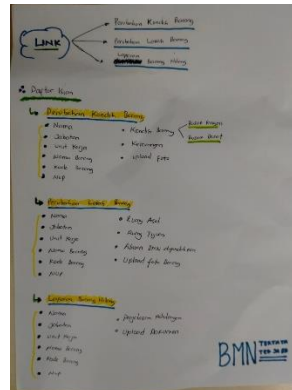 LINK
Perubahan Kondisi Barang
Perubahan Lokasi Barang
Laporan Barang Hilang
Daftar Item
Perubahan Kondisi Barang
Nama
Jabatan
Unit Kerja
Nama Barang
Kode Barang
NUP
Kondisi Barang
Rusak Ringan
Rusak Berat
Keterangan
Upload Foto
Perubahan Lokasi Barang
Nama
Jabatan
Unit Kerja
Nama Barang
Kode Barang
NUP
Ruang Asal
Ruang Tujuan
Alasan
Upload foto Barang
Laporan Barang Hilang
Nama
Jabatan
Unit Kerja
Nama Barang
Kode Barang
NUP
Penjelasan Kehilangan
Upload Dokumen
BMN
TERTATA